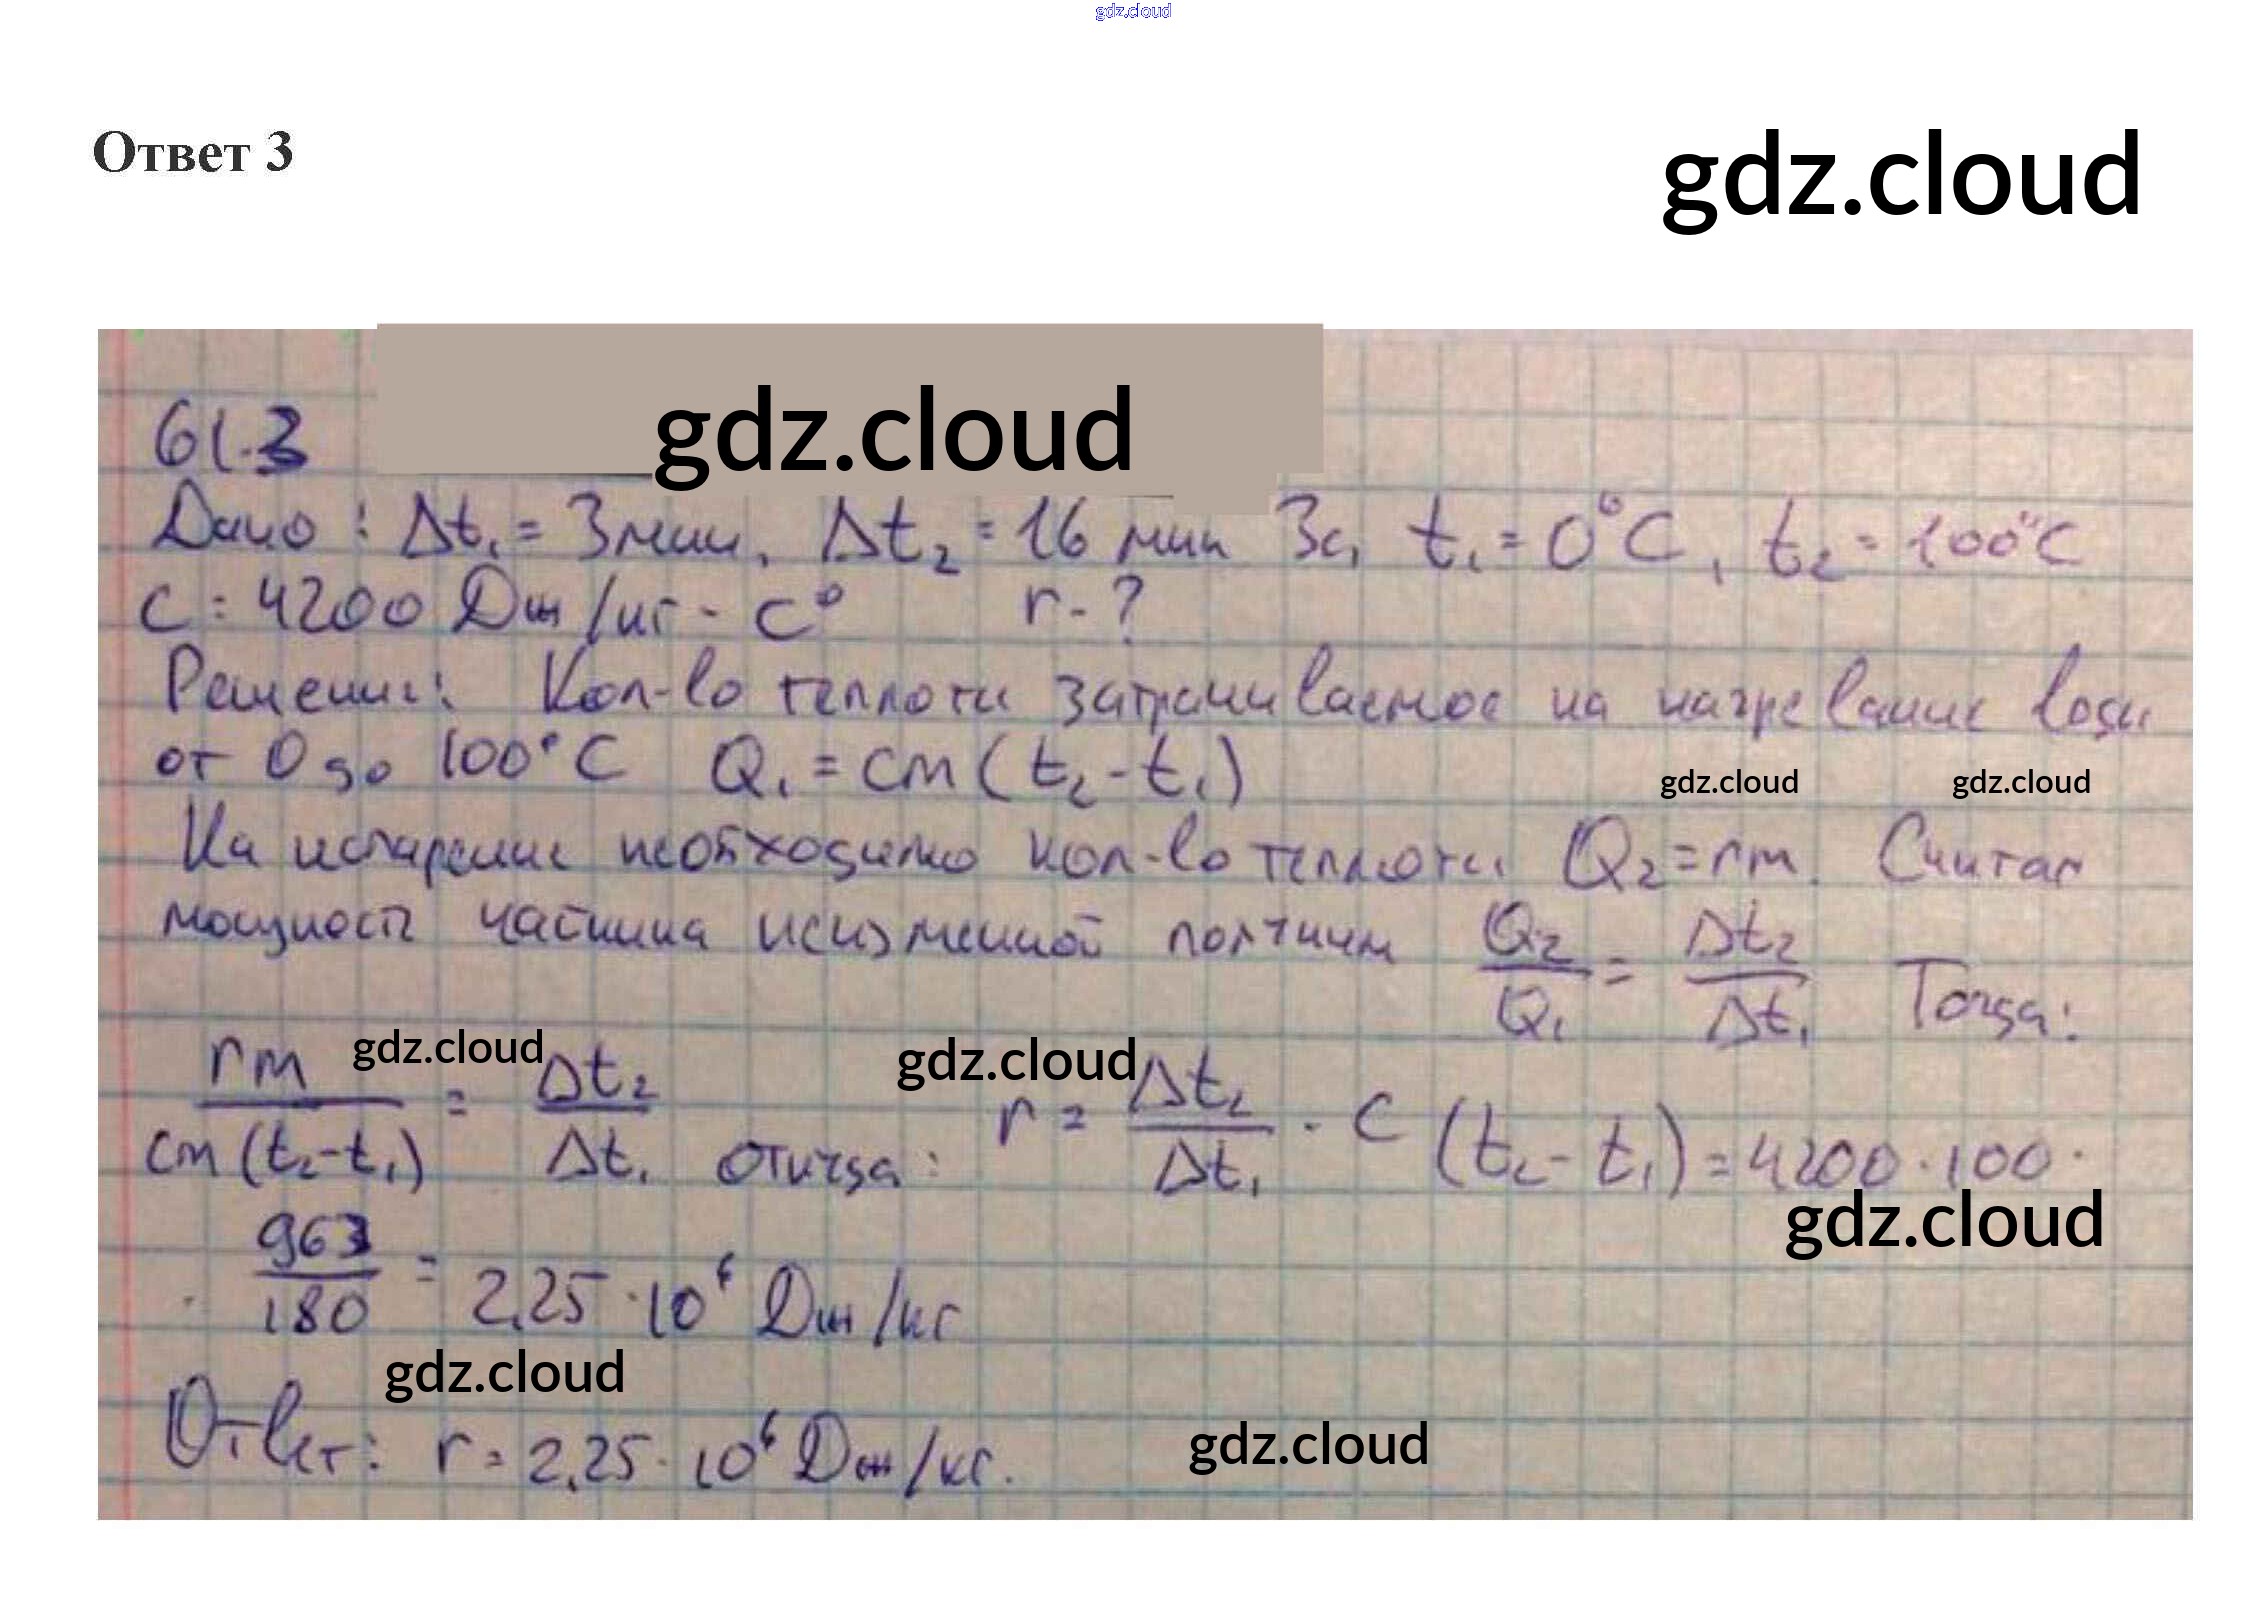 gdz.cloud
Ответ 3
gdz.cloud
61.3
gdz.cloud
Дано: Δt₁ = 3 мин, Δt₂ = 16 мин 3с, t₁ = 0°C, t₂ = 100°C
c = 4200 Дж/кг · C° r - ?
Решение: Кол-во теплоти затрачиваемое на нагревание води
от 0 до 100°C Q₁ = cm(t₂-t₁)
gdz.cloud gdz.cloud
На испарение необходимо кол-во теплоти Q₂ = rm. Считая
мощность чайника неизменной получим Q₂/Q₁ = Δt₂/Δt₁ Тогда:
gdz.cloud gdz.cloud
rm/cm(t₂-t₁) = Δt₂/Δt₁ откуда: r = Δt₂/Δt₁ · c (t₂-t₁) = 4200 · 100 ·
gdz.cloud
· 963/180 = 2,25 · 10⁶ Дж/кг
gdz.cloud
Ответ: r = 2,25 · 10⁶ Дж/кг.
gdz.cloud